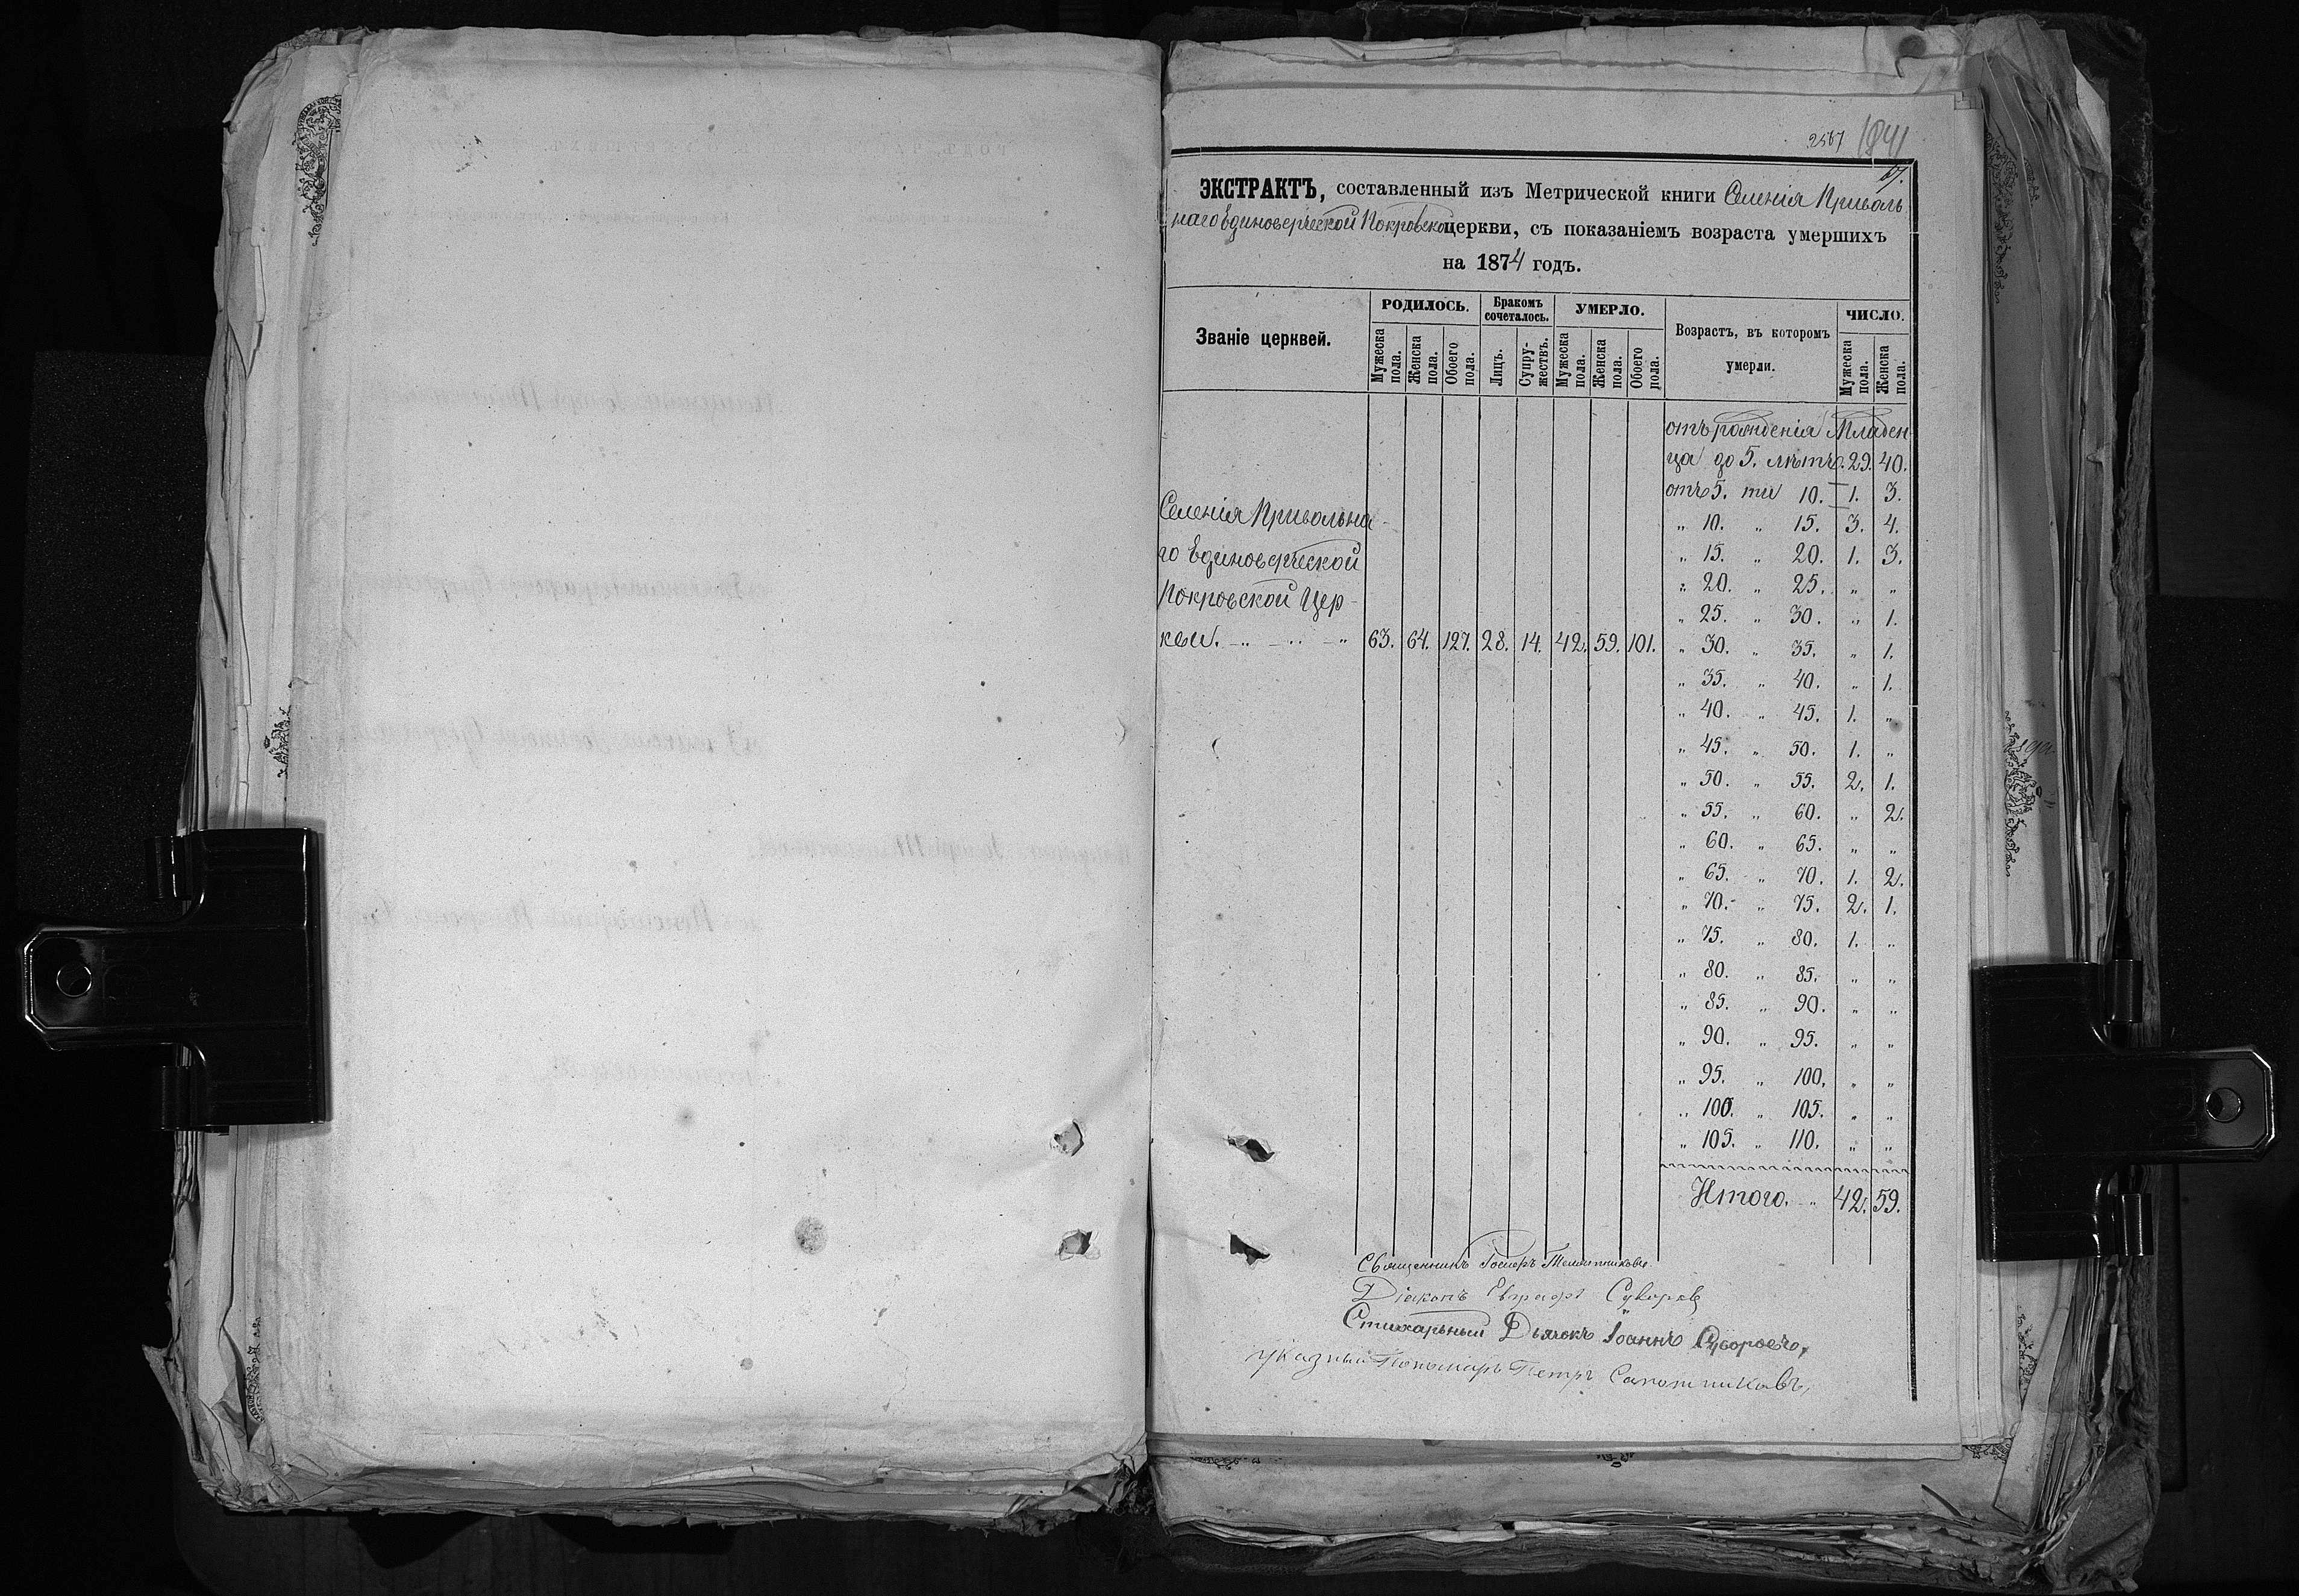 2567 1841
67.
ЭКСТРАКТЪ, составленный изъ Метрической книги Селенія Приволь
наго Единоверческой Покровской церкви, съ показаніемъ возраста умершихъ
на 1874 годъ.
Званіе церквей.
РОДИЛОСЬ.
Мужеска пола.
Женска пола.
Обоего пола.
Бракомъ сочеталось.
Лицъ.
Супружествъ.
УМЕРЛО.
Мужеска пола.
Женска пола.
Обоего пола.
Возрастъ, въ которомъ
умерли.
ЧИСЛО.
Мужеска пола.
Женска пола.
Селенія Привольна-
го Единоверческой
Покровской Цер-
кви. 63. 64. 127. 28. 14. 42. 59. 101.
отъ рожденія Младен
ца до 5. летъ. 29. 40.
отъ 5. ти 10. 1. 3.
„ 10. „ 15. 3. 4.
„ 15. „ 20. 1. 3.
„ 20. „ 25. „ „
„ 25. „ 30. „ 1.
„ 30. „ 35. „ 1.
„ 35. „ 40. „ 1.
„ 40. „ 45. 1. „
„ 45. „ 50. 1. „
„ 50. „ 55. 2. 1.
„ 55. „ 60. „ 2.
„ 60. „ 65. „ „
„ 65. „ 70. 1. 2.
„ 70. „ 75. 2. 1.
„ 75. „ 80. 1. „
„ 80. „ 85. „ „
„ 85. „ 90. „ „
„ 90. „ 95. „ „
„ 95. „ 100. „ „
„ 100. „ 105. „ „
„ 105. „ 110. „ „
Итого. „ 42. 59.
Священникъ
Діаконъ Евграфъ Суворов
Стихарный Дьячокъ Іоаннъ Суворовъ,
Указный Пономарь Петръ Сапожниковъ,